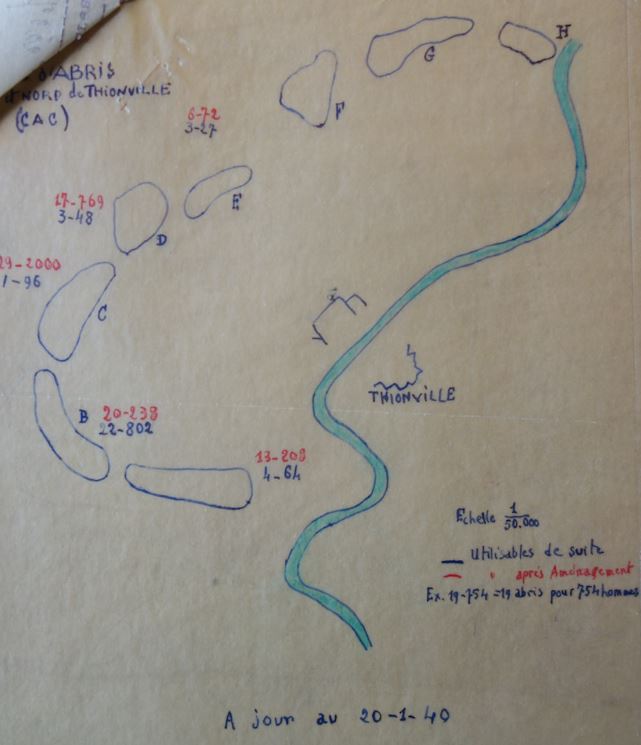 d'ABRIS
et NORD de THIONVILLE
(CAC)
H
G
F
6-72
3-27
E
17-769
3-48
D
29-2000
1-96
C
B
20-238
22-802
13-208
4-64
THIONVILLE
Echelle 1/50.000
Utilisables de suite
" après Aménagement
Ex. 19-754 = 19 abris pour 754 hommes
A jour au 20-1-40